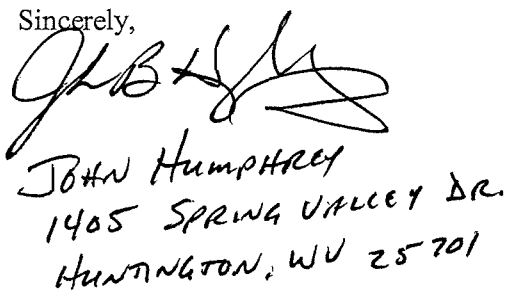 Sincerely,
John B H
John Humphrey
1405 Spring Valley Dr.
Huntington, WV 25701